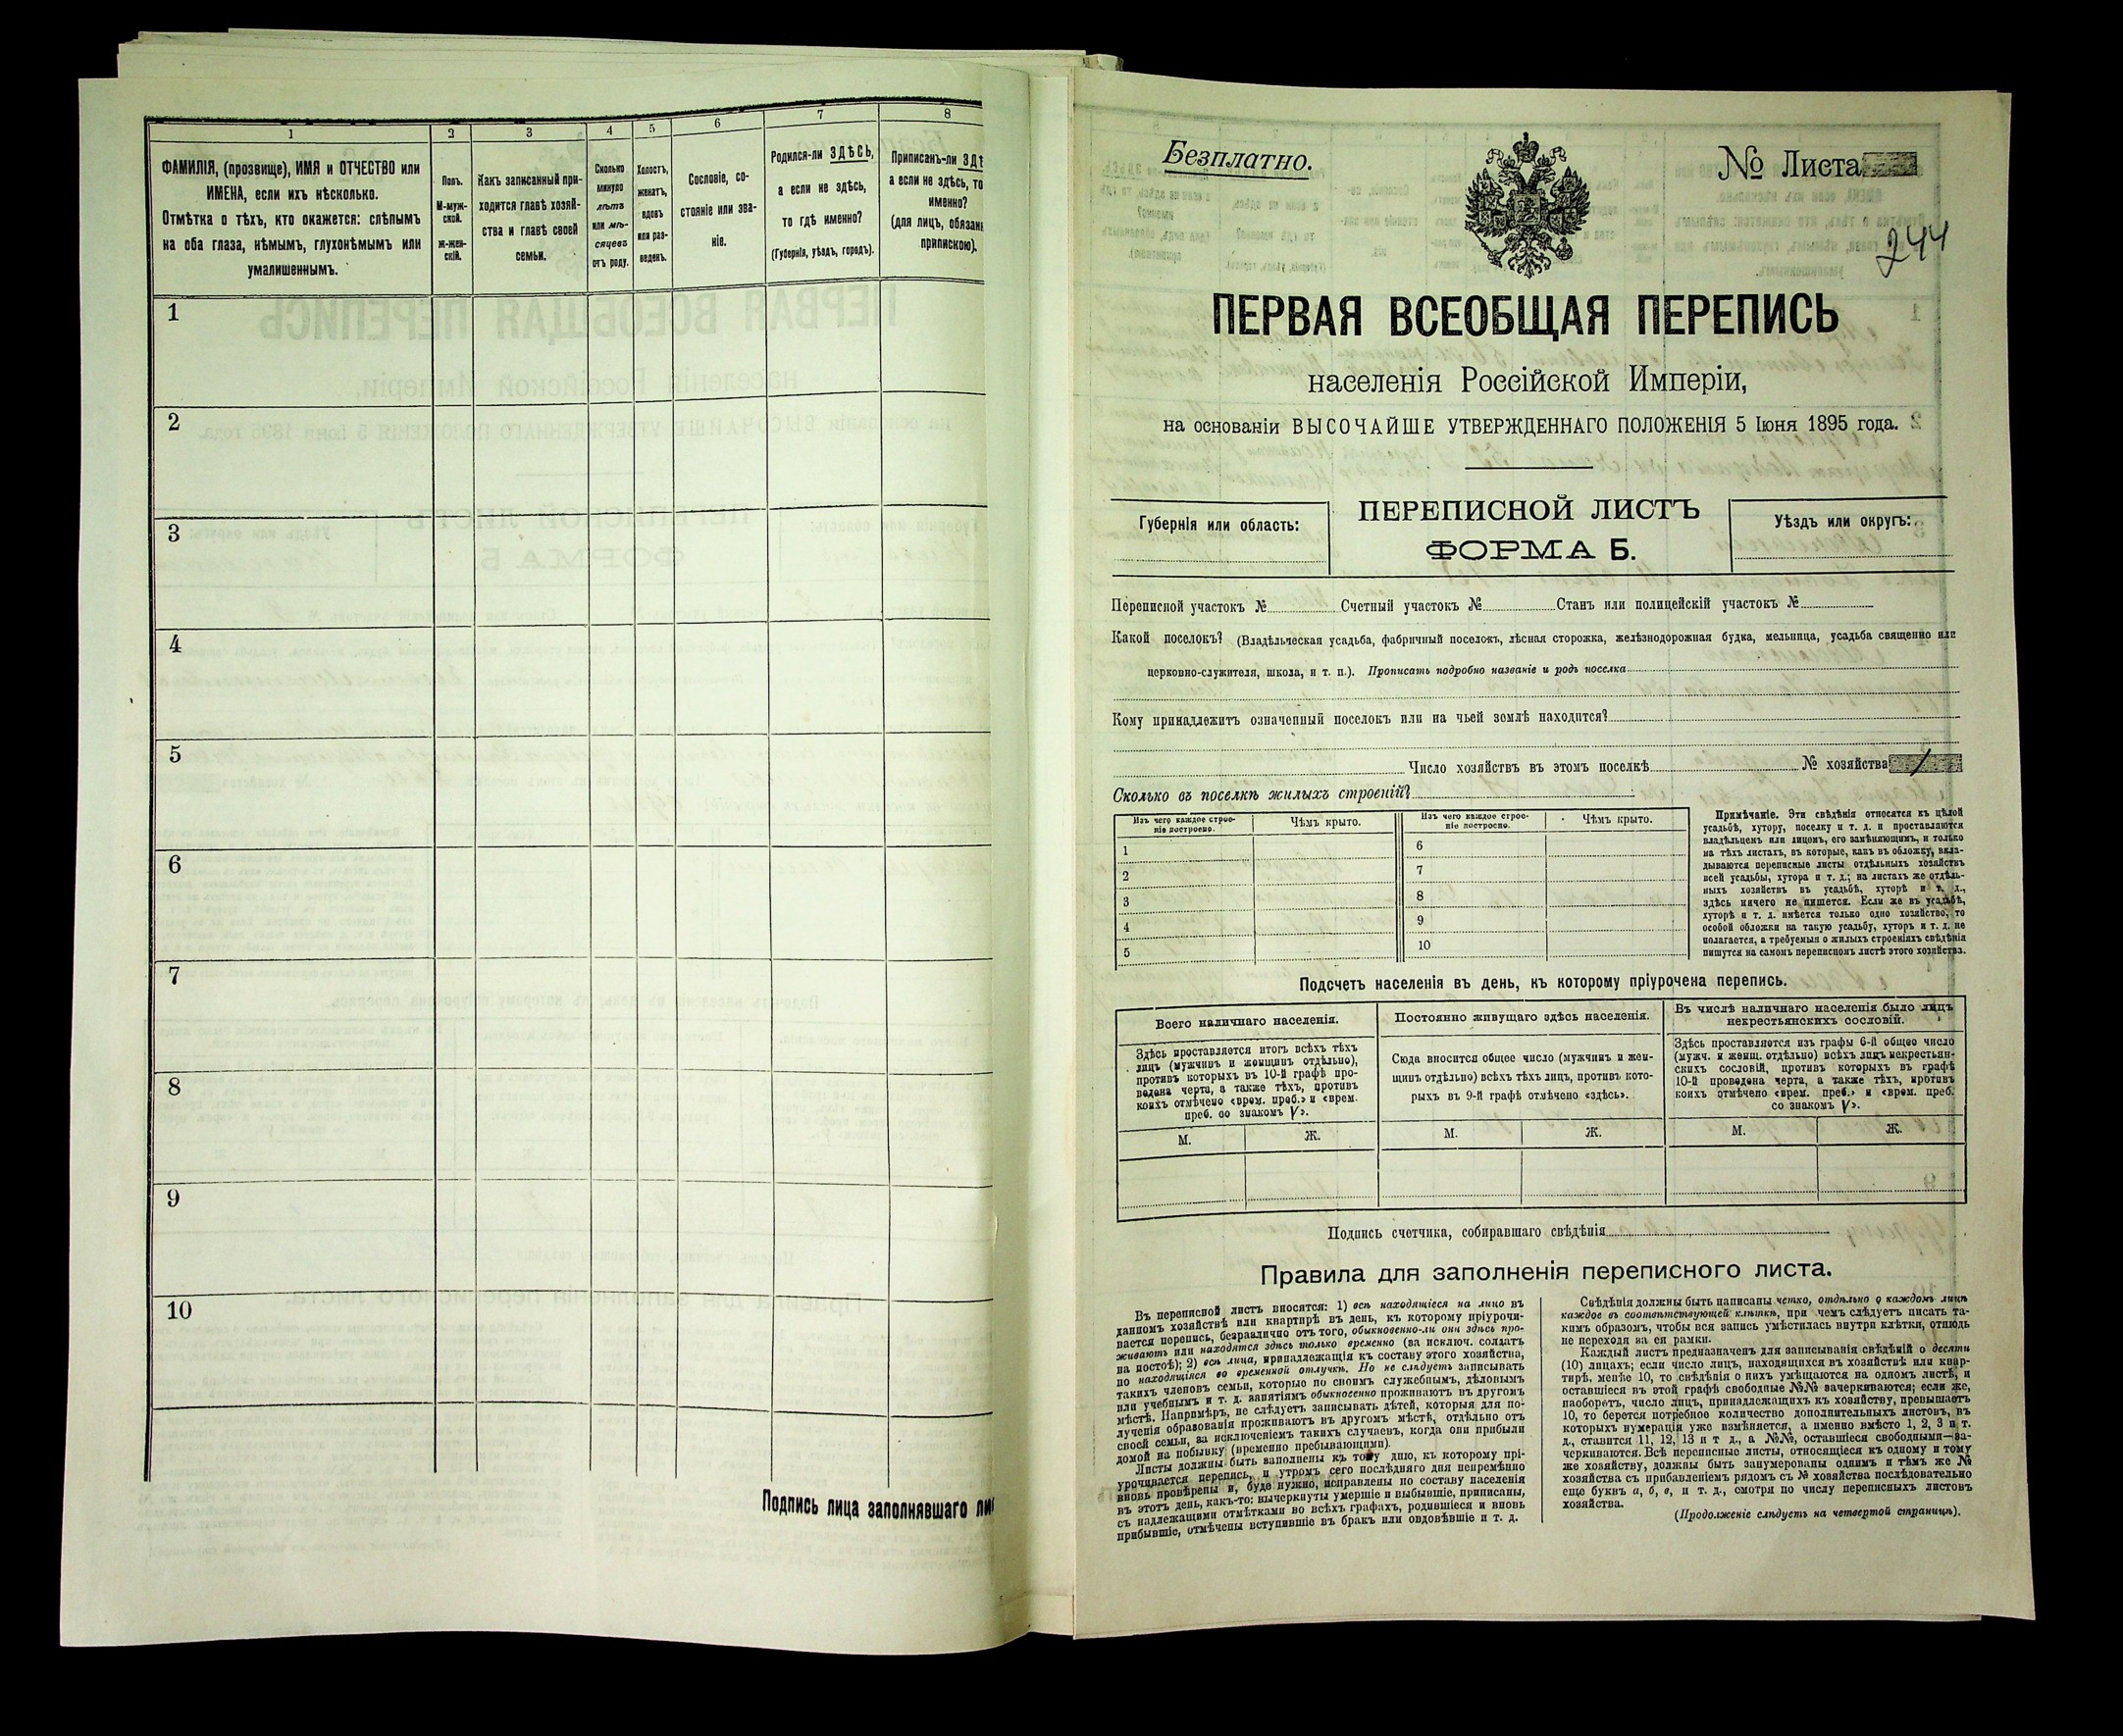 1 2 3 4 5 6 7 8
ФАМИЛІЯ, (прозвище), ИМЯ и ОТЧЕСТВО или
ИМЕНА, если ихъ нѣсколько.
Отмѣтка о тѣхъ, кто окажется: слѣпымъ
на оба глаза, нѣмымъ, глухонѣмымъ или
умалишеннымъ.
Полъ.
М-муж-
ской.
Ж-жен-
скій.
Какъ записанный при-
ходится главѣ хозяй-
ства и главѣ своей
семьи.
Сколько
минуло
лѣтъ
или мѣ-
сяцевъ
отъ роду.
Холостъ,
женатъ,
вдовъ
или раз-
веденъ.
Сословіе, со-
стояніе или зва-
ніе.
Родился-ли ЗДѢСЬ,
а если не здѣсь,
то гдѣ именно?
(Губернія, уѣздъ, городъ).
Приписанъ-ли ЗДѢ
а если не здѣсь, то
именно?
(для лицъ, обязан
припискою).
1
2
3
4
5
6
7
8
9
10
Подпись лица заполнявшаго ли
Безплатно.
№ Листа
244
ПЕРВАЯ ВСЕОБЩАЯ ПЕРЕПИСЬ
населенія Россійской Имперіи,
на основаніи ВЫСОЧАЙШЕ УТВЕРЖДЕННАГО ПОЛОЖЕНІЯ 5 Іюня 1895 года.
Губернія или область:
ПЕРЕПИСНОЙ ЛИСТЪ
ФОРМА Б.
Уѣздъ или округъ:
Переписной участокъ № Счетный участокъ № Станъ или полицейскій участокъ №
Какой поселокъ? (Владѣльческая усадьба, фабричный поселокъ, лѣсная сторожка, желѣзнодорожная будка, мельница, усадьба священно или
церковно-служителя, школа, и т. п.). Прописать подробно названіе и родъ поселка
Кому принадлежитъ означенный поселокъ или на чьей землѣ находится?
Число хозяйствъ въ этомъ поселкѣ № хозяйства 1
Сколько въ поселкѣ жилыхъ строеній?
Изъ чего каждое строе-
ніе построено.
Чѣмъ крыто.
Изъ чего каждое строе-
ніе построено.
Чѣмъ крыто.
1 6
2 7
3 8
4 9
5 10
Примѣчаніе. Эти свѣдѣнія относятся къ цѣлой
усадьбѣ, хутору, поселку и т. д. и проставляются
владѣльцемъ или лицомъ, его замѣняющимъ, и только
на тѣхъ листахъ, въ которые, какъ въ обложку, вкла-
дываются переписные листы отдѣльныхъ хозяйствъ
всей усадьбы, хутора и т. д.; на листахъ же отдѣль-
ныхъ хозяйствъ въ усадьбѣ, хуторѣ и т. д.,
здѣсь ничего не пишется. Если же въ усадьбѣ,
хуторѣ и т. д. имѣется только одно хозяйство, то
особой обложки на такую усадьбу, хуторъ и т. д. не
полагается, а требуемыя о жилыхъ строеніяхъ свѣдѣнія
пишутся на самомъ переписномъ листѣ этого хозяйства.
Подсчетъ населенія въ день, къ которому пріурочена перепись.
Всего наличнаго населенія.
Здѣсь проставляется итогъ всѣхъ тѣхъ
лицъ (мужчинъ и женщинъ отдѣльно),
противъ которыхъ въ 10-й графѣ про-
ведена черта, а также тѣхъ, противъ
коихъ отмѣчено «врем. преб.» и «врем.
преб. со знакомъ V».
Постоянно живущаго здѣсь населенія.
Сюда вносится общее число (мужчинъ и жен-
щинъ отдѣльно) всѣхъ тѣхъ лицъ, противъ кото-
рыхъ въ 9-й графѣ отмѣчено «здѣсь».
Въ числѣ наличнаго населенія было лицъ
некрестьянскихъ сословій.
Здѣсь проставляется изъ графы 6-й общее число
(мужч. и женщ. отдѣльно) всѣхъ лицъ некрестьян-
скихъ сословій, противъ которыхъ въ графѣ
10-й проведена черта, а также тѣхъ, противъ
коихъ отмѣчено «врем. преб.» и «врем. преб.
со знакомъ V».
М. Ж. М. Ж. М. Ж.
Подпись счетчика, собиравшаго свѣдѣнія
Правила для заполненія переписного листа.
Въ переписной листъ вносятся: 1) всѣ находящіеся на лицо въ
данномъ хозяйствѣ или квартирѣ въ день, къ которому пріурочи-
вается перепись, безразлично отъ того, обыкновенно-ли они здѣсь про-
живаютъ или находятся здѣсь только временно (за исключ. солдатъ
на постоѣ); 2) всѣ лица, принадлежащія къ составу этого хозяйства,
но находящіяся во временной отлучкѣ. Но не слѣдуетъ записывать
такихъ членовъ семьи, которые по своимъ служебнымъ, дѣловымъ
или учебнымъ и т. д. занятіямъ обыкновенно проживаютъ въ другомъ
мѣстѣ. Напримѣръ, не слѣдуетъ записывать дѣтей, которыя для по-
лученія образованія проживаютъ въ другомъ мѣстѣ, отдѣльно отъ
своей семьи, за исключеніемъ такихъ случаевъ, когда они прибыли
домой на побывку (временно пребывающими).
Листы должны быть заполнены къ тому дню, къ которому прі-
урочивается перепись, и утромъ сего послѣдняго дня непремѣнно
вновь провѣрены и, буде нужно, исправлены по составу населенія
въ этотъ день, какъ-то: вычеркнуты умершіе и выбывшіе, приписаны,
съ надлежащими отмѣтками во всѣхъ графахъ, родившіеся и вновь
прибывшіе, отмѣчены вступившіе въ бракъ или овдовѣвшіе и т. д.
Свѣдѣнія должны быть написаны четко, отдѣльно о каждомъ лицѣ
каждое въ соотвѣтствующей клѣткѣ, при чемъ слѣдуетъ писать та-
кимъ образомъ, чтобы вся запись умѣстилась внутри клѣтки, отнюдь
не переходя за ея рамки.
Каждый листъ предназначенъ для записыванія свѣдѣній о десяти
(10) лицахъ; если число лицъ, находящихся въ хозяйствѣ или квар-
тирѣ, менѣе 10, то свѣдѣнія о нихъ умѣщаются на одномъ листѣ, и
оставшіеся въ этой графѣ свободные №№ зачеркиваются; если же,
наоборотъ, число лицъ, принадлежащихъ къ хозяйству, превышаетъ
10, то берется потребное количество дополнительныхъ листовъ, въ
которыхъ нумерація уже измѣняется, а именно вмѣсто 1, 2, 3 и т.
д., ставится 11, 12, 13 и т д., а №№, оставшіеся свободными—за-
черкиваются. Всѣ переписные листы, относящіеся къ одному и тому
же хозяйству, должны быть занумерованы однимъ и тѣмъ же №
хозяйства съ прибавленіемъ рядомъ съ № хозяйства послѣдовательно
еще буквъ а, б, в, и т. д., смотря по числу переписныхъ листовъ
хозяйства.
(Продолженіе слѣдуетъ на четвертой страницѣ).